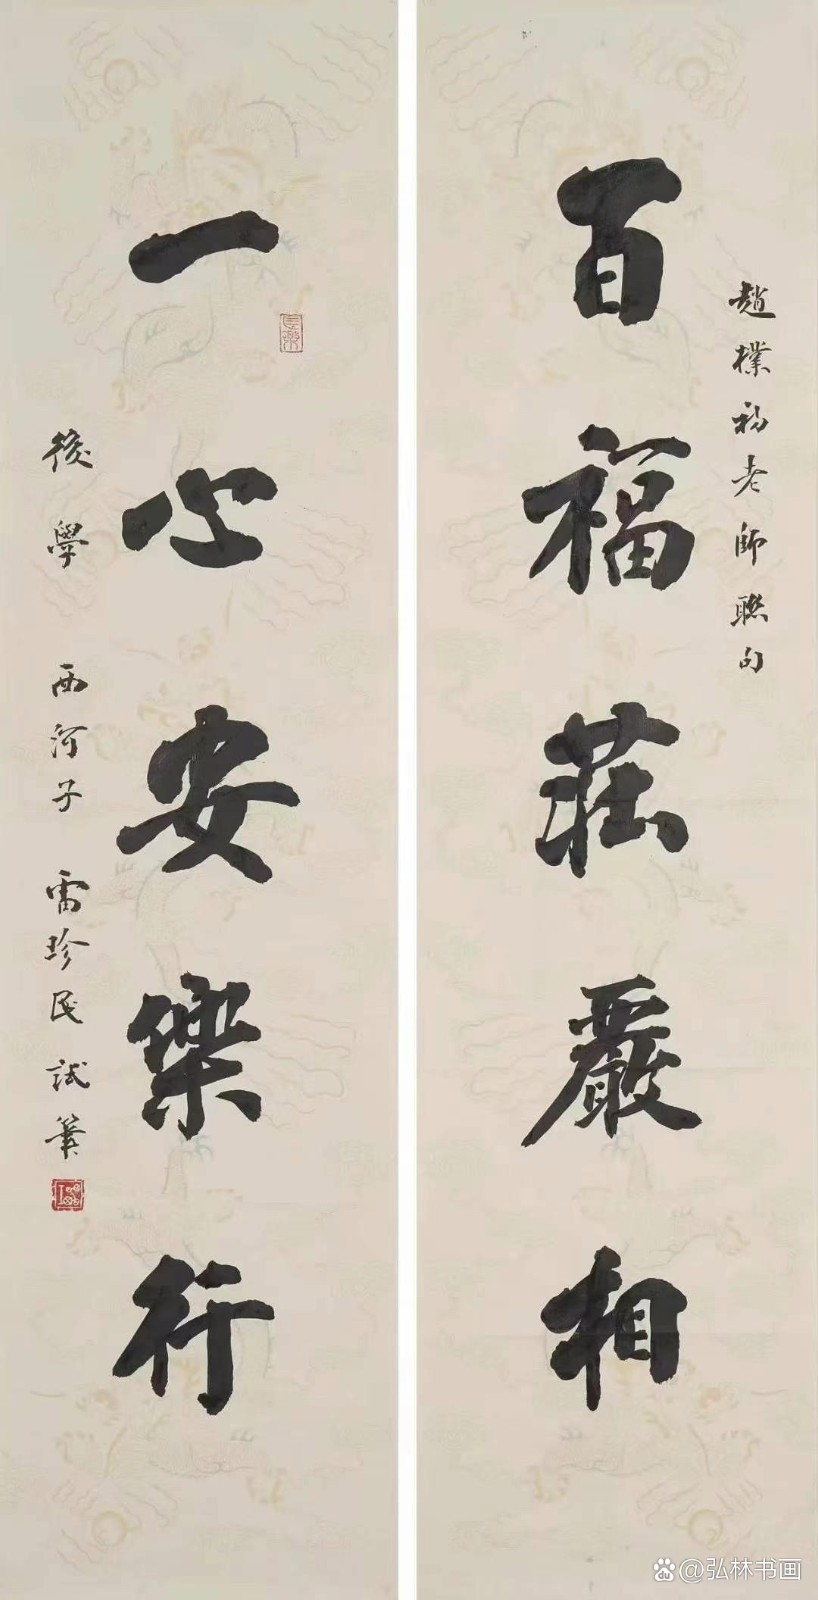 趙樸初老師聯句
百福莊嚴相
一心安樂行
後學 西河子 雷珍民試筆
@弘林书画